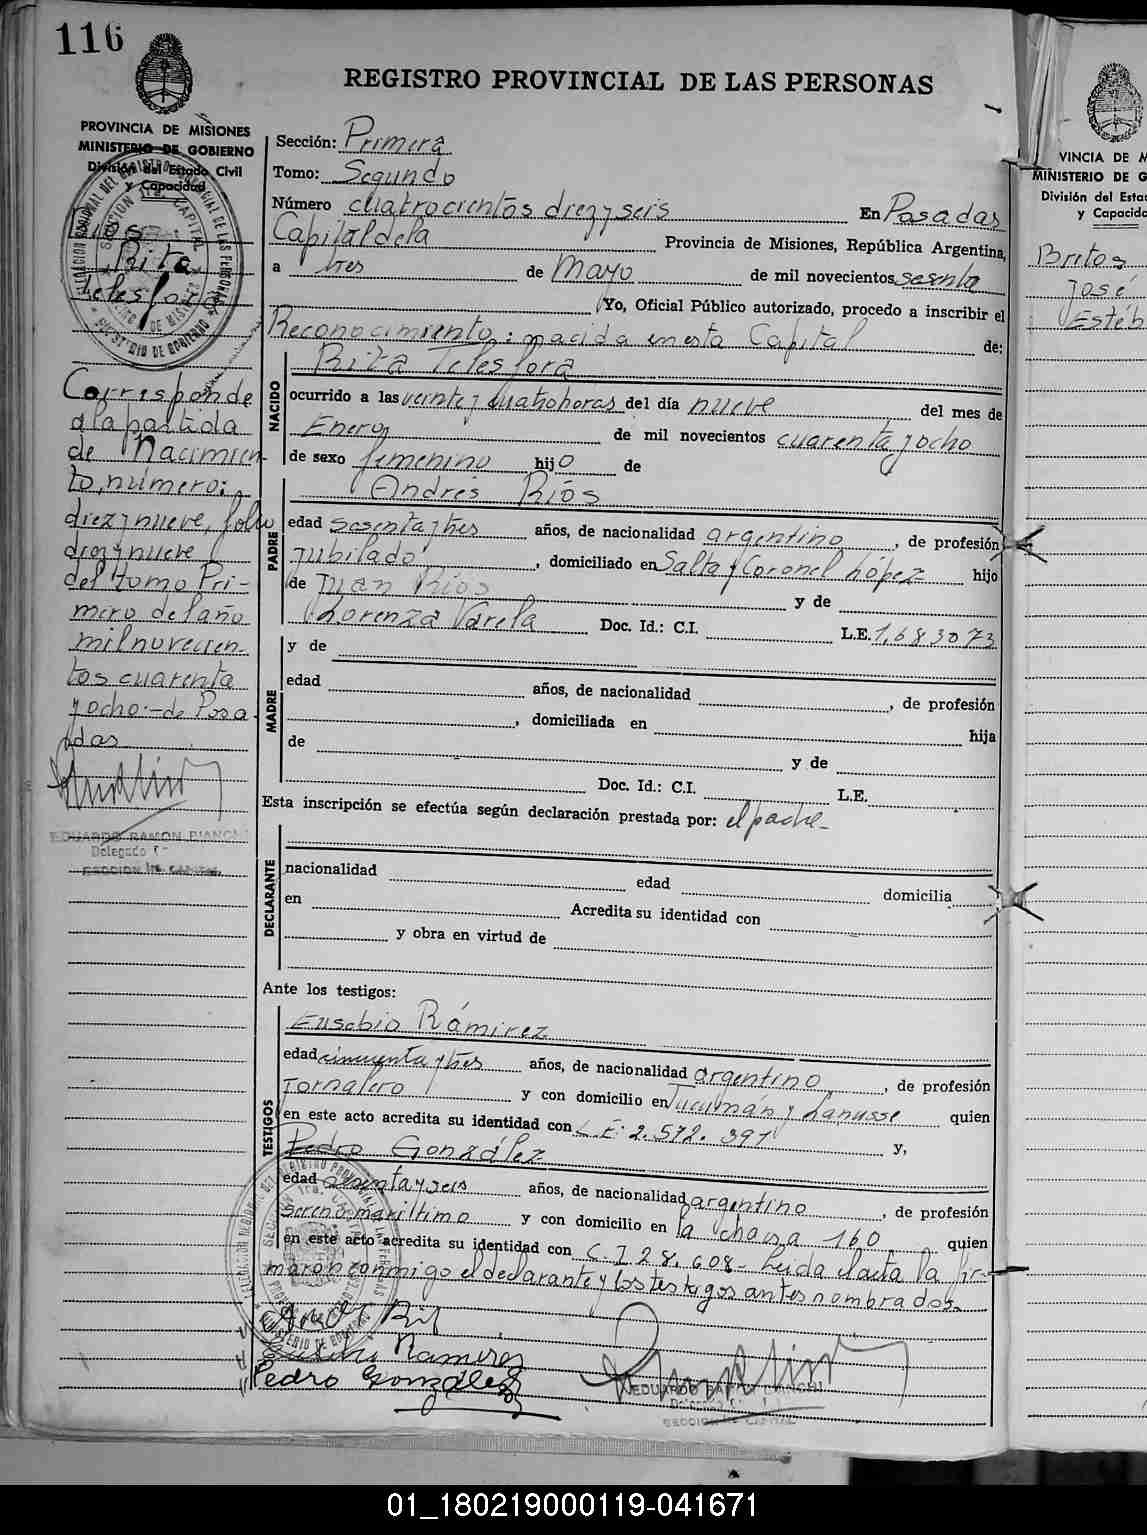 116
REGISTRO PROVINCIAL DE LAS PERSONAS
PROVINCIA DE MISIONES
MINISTERIO DE GOBIERNO
División del Estado Civil
y Capacidad
Rita
Telesfora
Corresponde
a la partida
de Nacimien-
to, número:
diez y nueve, folio
diez y nueve
del tomo Pri-
mero del año
mil novecien-
tos cuarenta
y ocho.- de Posa-
das
EDUARDO RAMON BIANCHI
Delegado
SECCION 1ra. CAPITAL
Sección: Primera
Tomo: Segundo
Número cuatrocientos diez y seis En Posadas
Capital de la Provincia de Misiones, República Argentina,
a tres de Mayo de mil novecientos sesenta
Yo, Oficial Público autorizado, procedo a inscribir el
Reconocimiento: nacida en esta Capital de:
NACIDO
Rita Telesfora
ocurrido a las veinte y cuatro horas del día nueve del mes de
Enero de mil novecientos cuarenta y ocho
de sexo femenino hijo de
PADRE
Andrés Ríos
edad sesenta y tres años, de nacionalidad argentino, de profesión
jubilado, domiciliado en Salta y Coronel López hijo
de Juan Ríos y de
Lorenza Varela Doc. Id.: C.I. L.E. 1,683073
MADRE
y de
edad años, de nacionalidad , de profesión
, domiciliada en hija
de y de
Doc. Id.: C.I. L.E.
Esta inscripción se efectúa según declaración prestada por: el padre-
DECLARANTE
nacionalidad edad domicilia
en Acredita su identidad con
y obra en virtud de
Ante los testigos:
TESTIGOS
Eusebio Rámirez
edad cincuenta y tres años, de nacionalidad argentino, de profesión
Jornalero y con domicilio en Tucumán y Lanusse quien
en este acto acredita su identidad con L.E. 2.572.391 y,
Pedro González
edad y seis años, de nacionalidad argentino, de profesión
sereno marítimo y con domicilio en la chacra 160 quien
en este acto acredita su identidad con C.I 28.608- Leída el acta la fir-
maron conmigo el declarante y los testigos antes nombrados.
Ramirez
Pedro González
EDUARDO RAMON BIANCHI
SECCION CAPITAL
VINCIA DE M
MINISTERIO DE G
División del Esta
y Capacida
Britos
José
Estéb
01_180219000119-041671